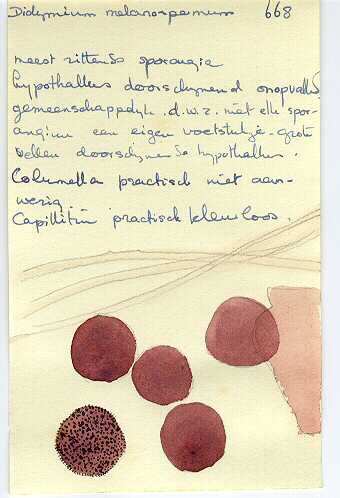 Didymium melanospermum 668
meest zittende sporangia
hypothallus doorschijnend onopvallend
gemeenschappelijk. d.w.z. niet elk spor-
angium een eigen voetstukje - grote
vellen doorschijnende hypothallus.
Columella practisch niet aan-
wezig
Capillitium practisch kleurloos.